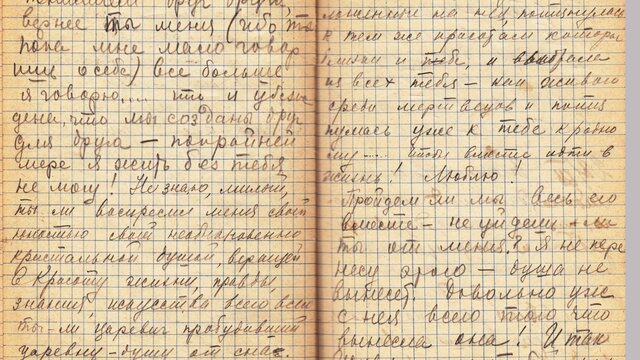 понимаем друг друга,
вернее ты меня (ибо ты
пока мне мало говор
ишь о себе) всё больше
я говорю.... что я убеж
дена, что мы созданы друг
для друга — по крайней
мере я жить без тебя
не могу! Не знаю, милый,
ты ли воскресил меня своей
своей необыкновенно
кристальной душой, верующей
в красоту жизни, правды,
знания, искусства всего всего
ты-ли царевич пробудивший
царевну-душу от сна.
на них, потянулась
к тем же красотам которы
близки и тебе, и выбрала
из всех тебя — как живого
среди мертвецов и потя
нулась уже к тебе к равно
му .... чтобы вместе идти в
жизнь! Люблю!
Пройдем ли мы весь его
вместе — не уйдешь ли
ты от меня? Я не пере
несу этого — душа не
вынесет! Довольно уже
с нея всего того что
вынесла она! И так